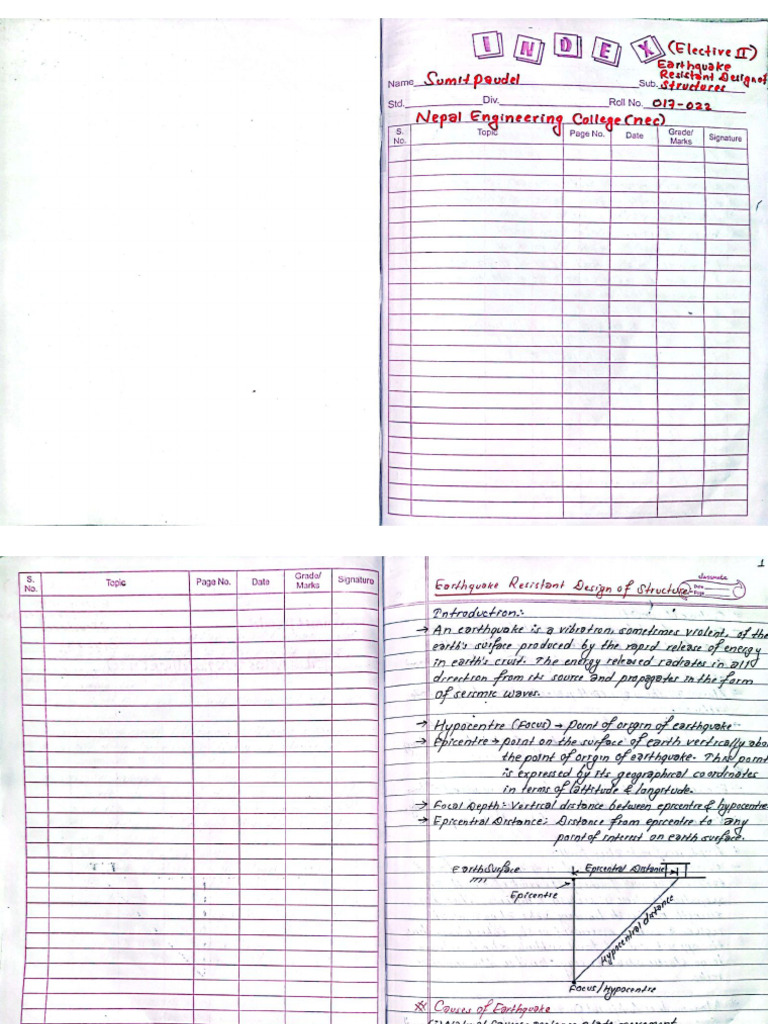 INDEX (Elective II)
Name Sumit Paudel Sub. Earthquake
Resistant Design of
Structures
Std. Div. Roll No. 017-022
Nepal Engineering College (nec)
S. No. Topic Page No. Date Grade/ Marks Signature
S. No. Topic Page No. Date Grade/ Marks Signature
1
Earthquake Resistant Design of Structure
Date
Page
Introduction:-
→ An earthquake is a vibration, sometimes violent, of the
earth's surface produced by the rapid release of energy
in earth's crust. The energy released radiates in all
direction from its source and propagates in the form
of seismic waves.
→ Hypocentre (Focus) → point of origin of earthquake
→ Epicentre → point on the surface of earth vertically abo
the point of origin of earthquake. This point
is expressed by its geographical coordinates
in terms of lattitude & longitude.
→ Focal Depth: Vertical distance between epicentre & hypocentre
→ Epicentral Distance: Distance from epicentre to any
point of interest on earth surface.
Earth Surface Epicentral Distance
Epicentre
Hypocentral distance
Focus/Hypocentre
* Causes of Earthquake